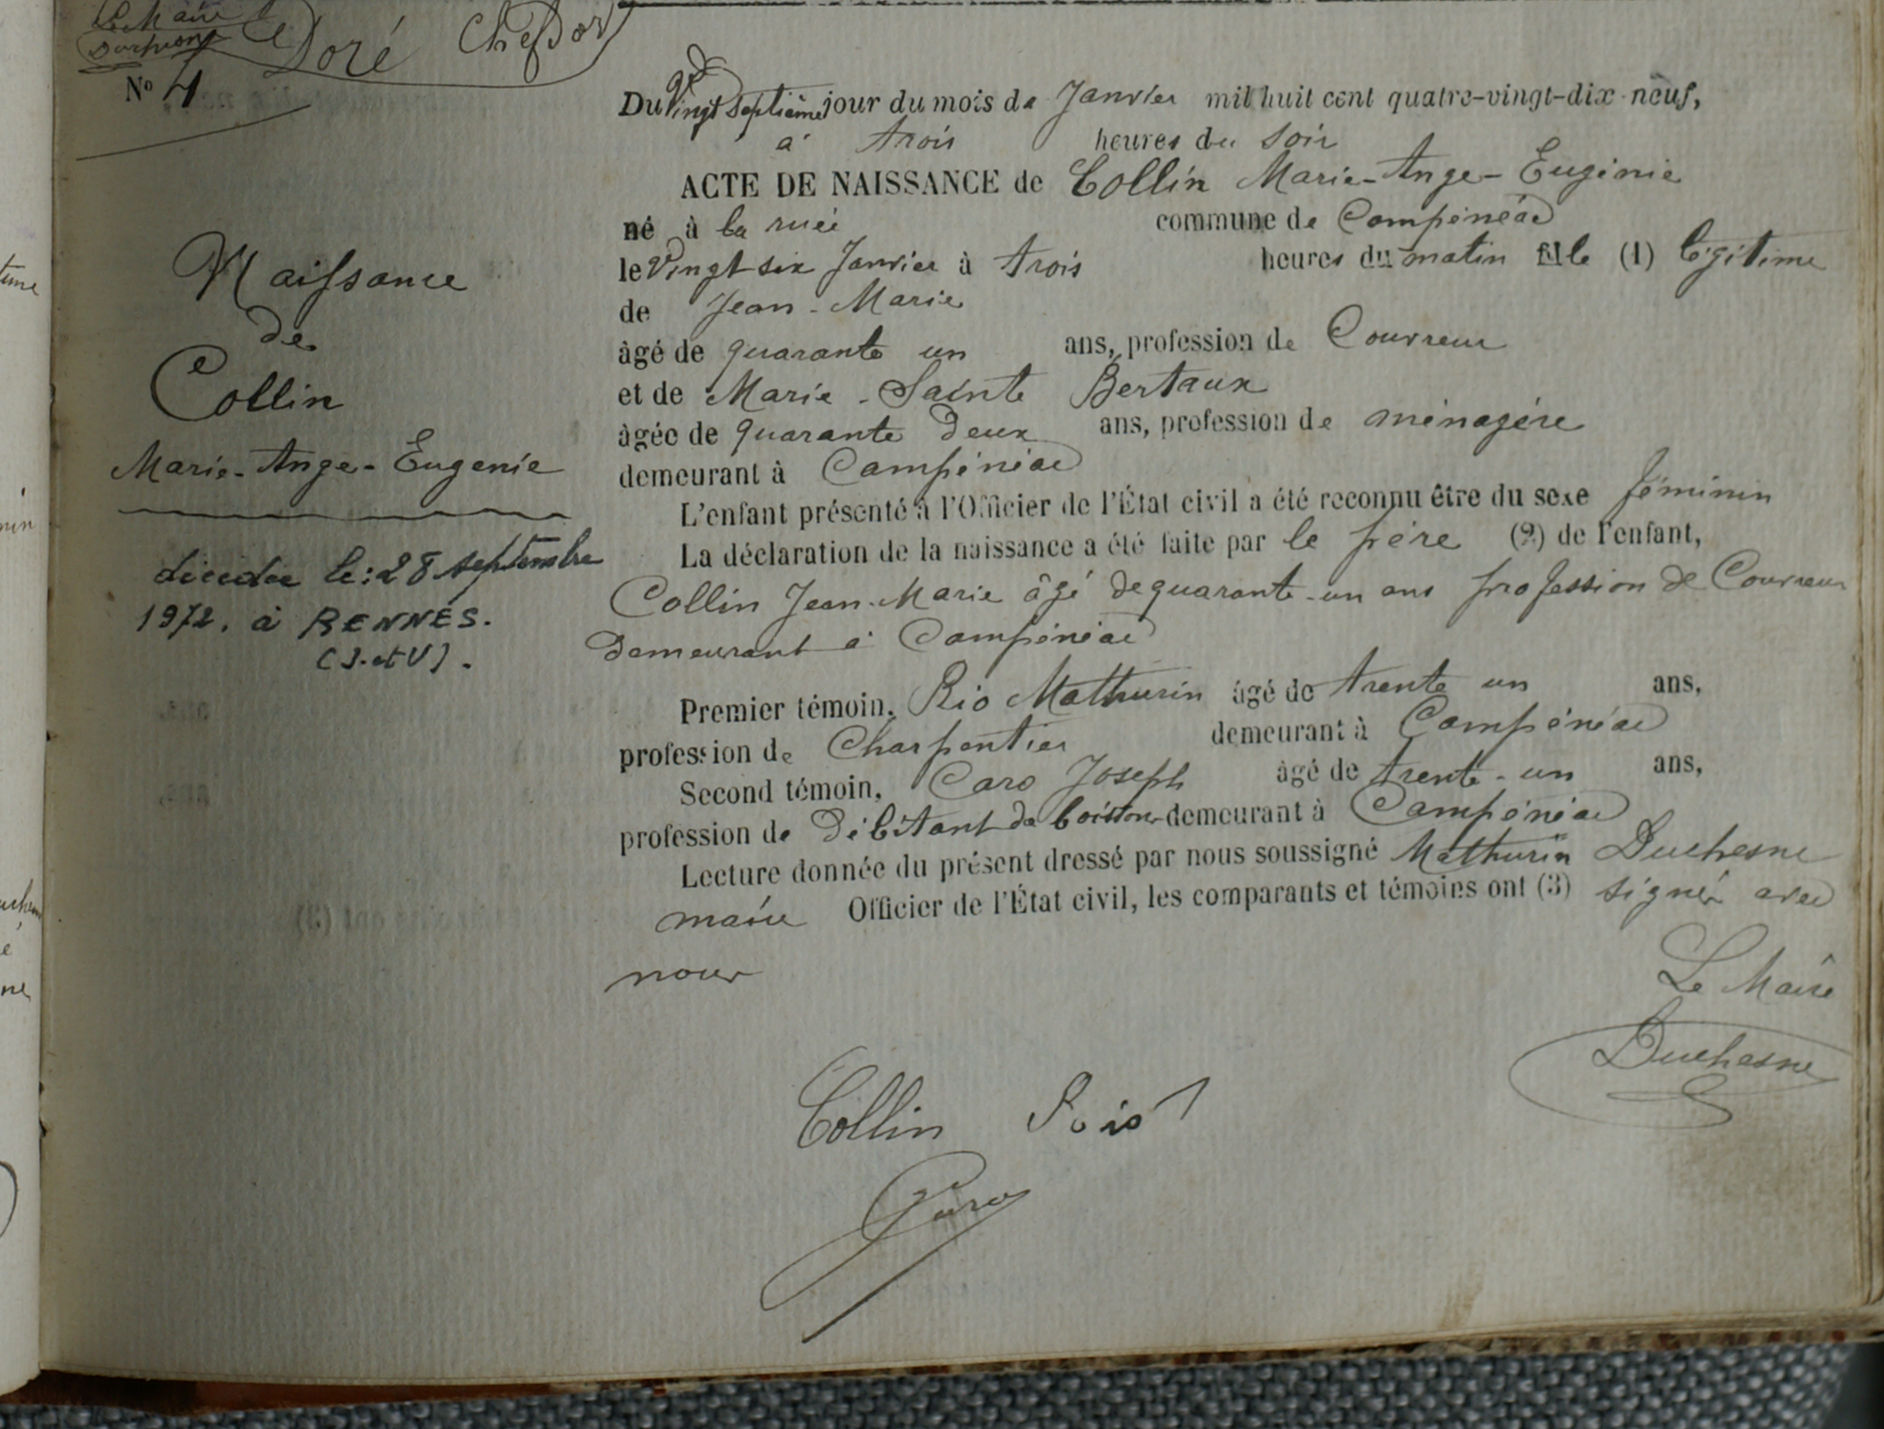 Le Maire
Duchesne
Doré
N° 4
Du Vingt Septième jour du mois de Janvier mil huit cent quatre-vingt-dix-neuf,
à trois heures du soir
ACTE DE NAISSANCE de Collin Marie-Ange-Eugénie
né à la ruée commune de Campénéac
le Vingt six Janvier à trois heures du matin fille (1) légitime
de Jean-Marie
âgé de quarante un ans, profession de Couvreur
et de Marie-Sainte Bertaux
âgée de quarante deux ans, profession de ménagère
demeurant à Campénéac
L'enfant présenté à l'Officier de l'État civil a été reconnu être du sexe féminin
La déclaration de la naissance a été faite par le père (2) de l'enfant,
Collin Jean-Marie âgé de quarante-un ans profession de Couvreur
Demeurant à Campénéac
Premier témoin, Rio Mathurin âgé de trente un ans,
profession de Charpentier demeurant à Campénéac
Second témoin, Caro Joseph âgé de trente-un ans,
profession de Débitant de boissons demeurant à Campénéac
Lecture donnée du présent dressé par nous soussigné Mathurin Duchesne
maire Officier de l'État civil, les comparants et témoins ont (3) signé avec
nous
Le Maire
Duchesne
Collin Rio
Caro
Naissance
de
Collin
Marie-Ange-Eugenie
décédée le: 28 septembre
1972. à RENNES.
(I. et V).